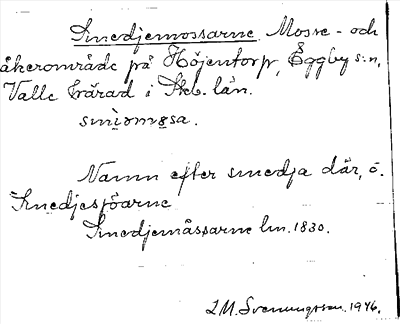 Smedjemossarne Mosse- och
åkerområde på Höjentorp, Eggby s:n,
Valle härad i Skb. län.
smìəmɷsa.
Namn efter smedja där, ö.
Smedjesjöarne
Smedjemåssarne lm. 1830.
I.M. Svenungsson. 1946.